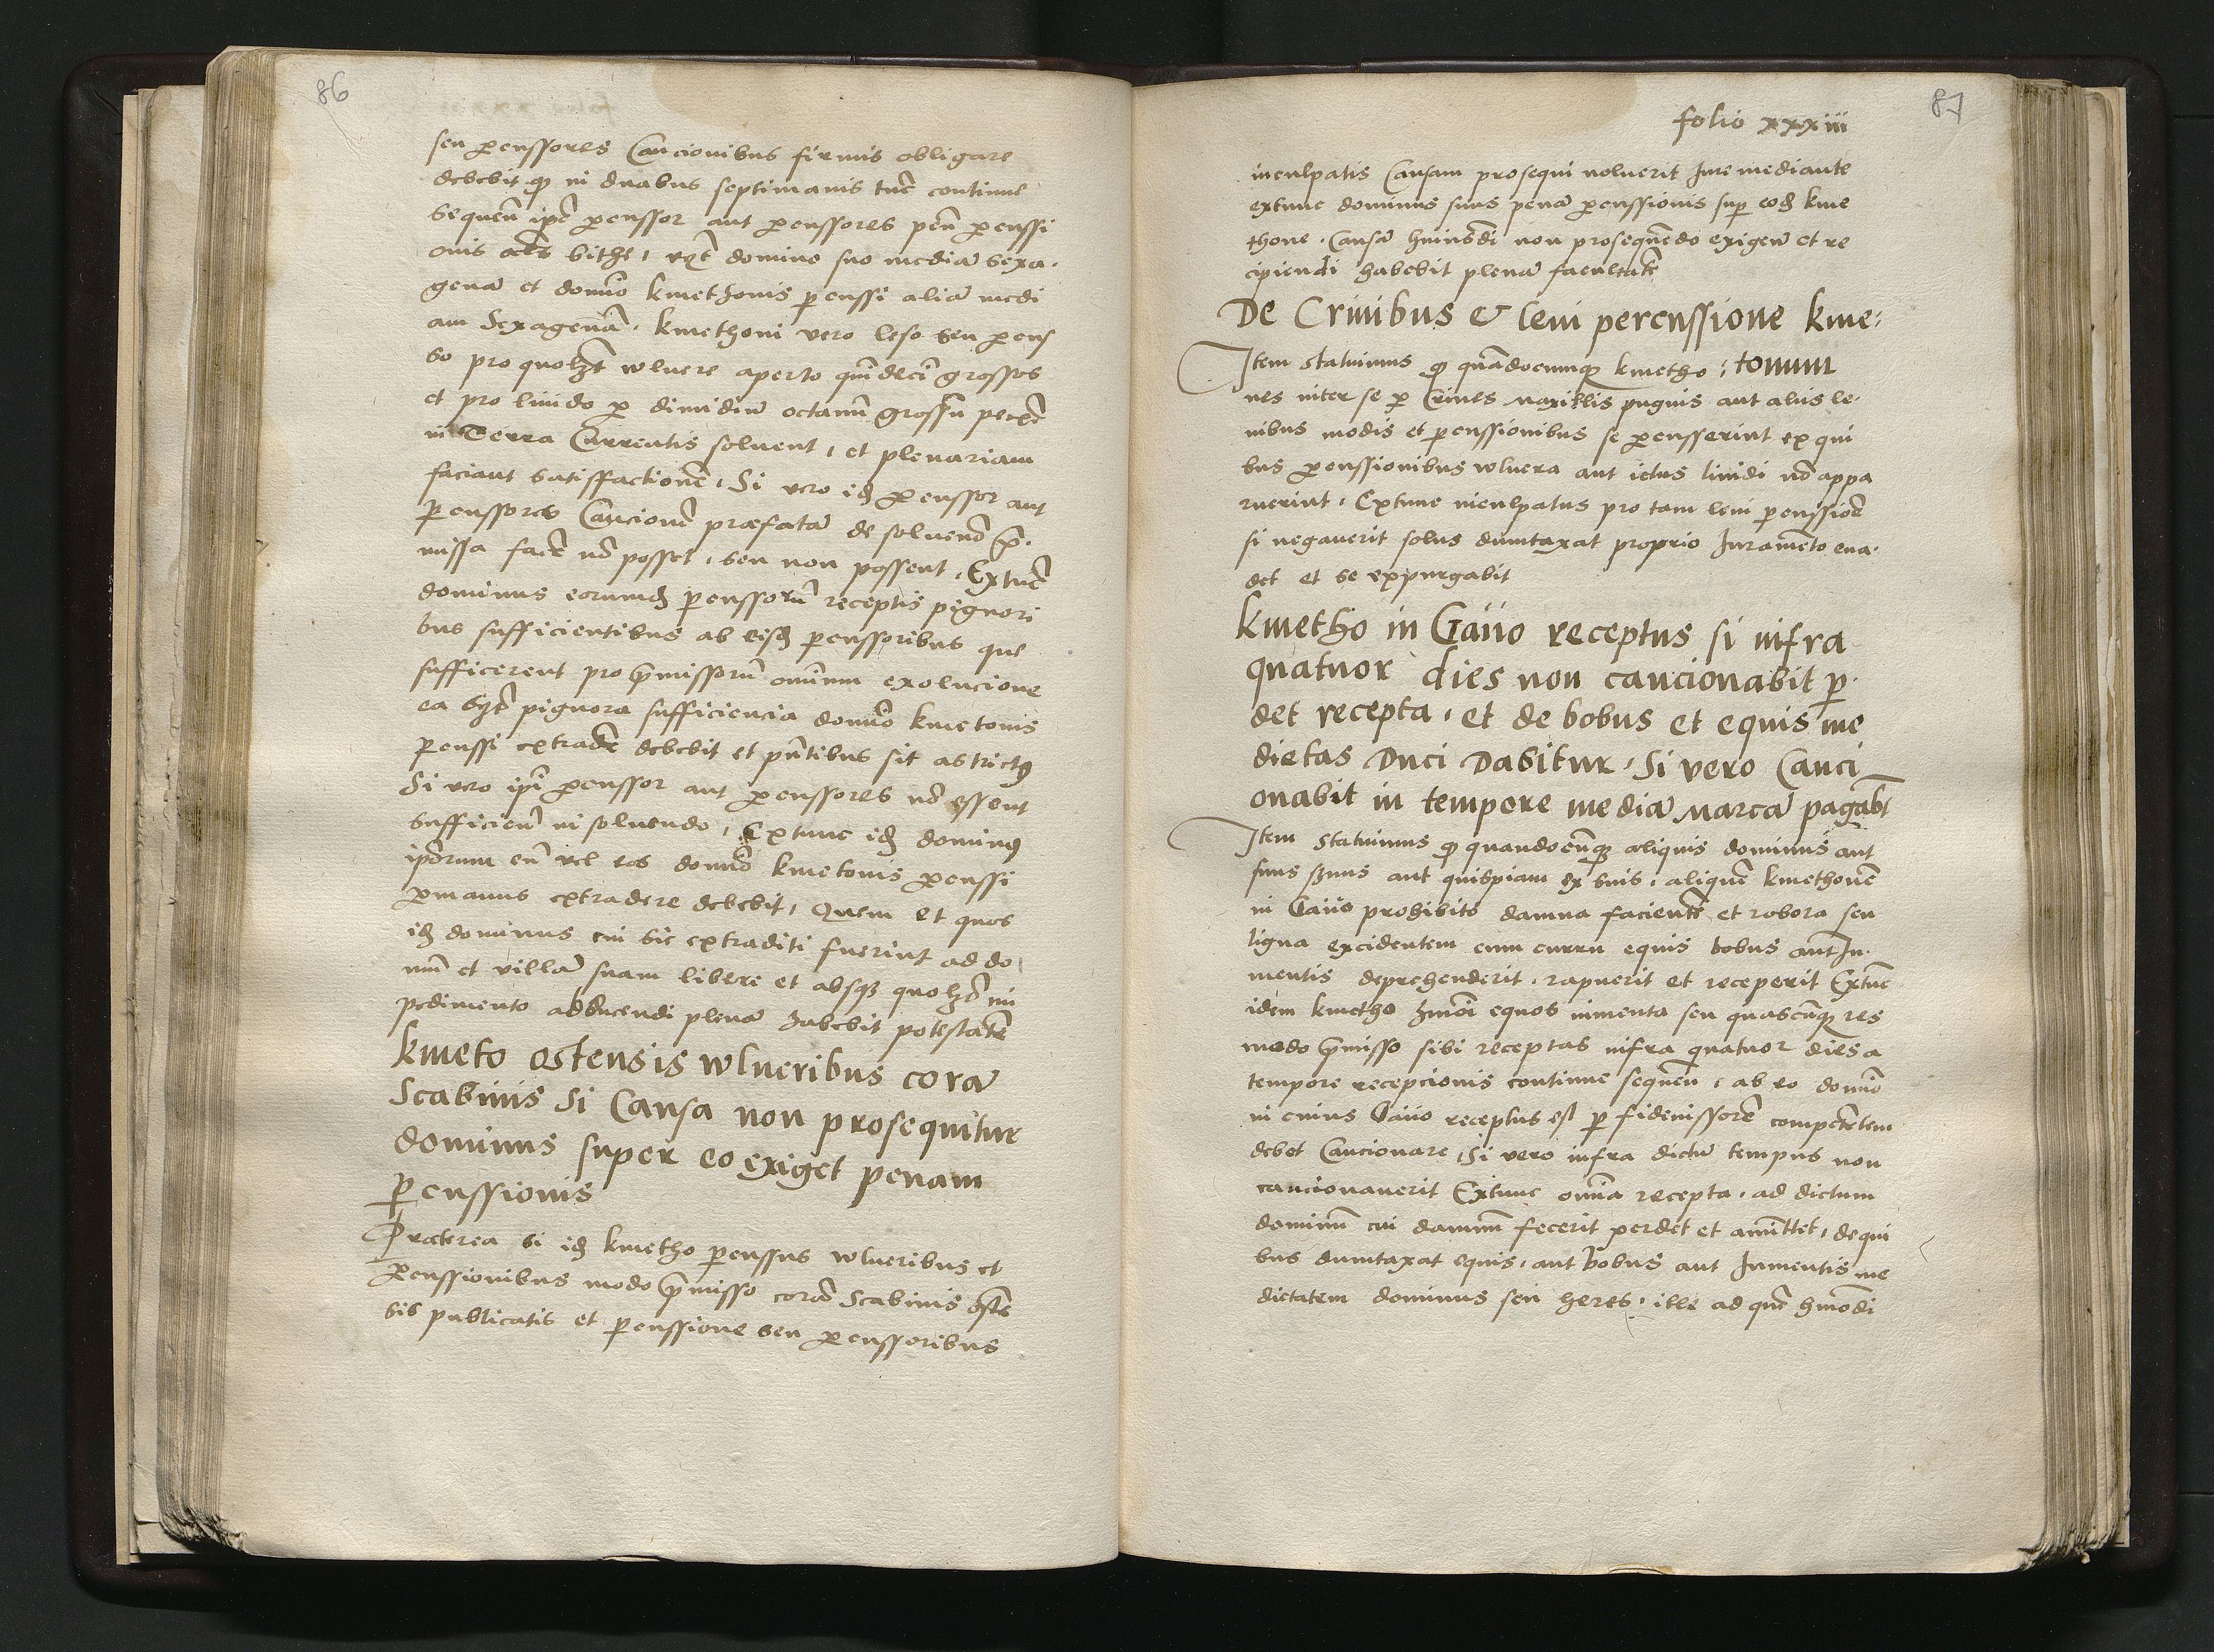 86
seu p̱cussores Caucionibus firmis obligare
debebit qꝫ in duabus septimanis tūc continue
sequeñ ip̄e p̱cussor aut p̱cussores peñ p̱cussi
onis bithe, domino suo mediā sexa-
genā et domīo kmethonis p̱cussi aliā medi
am Sexagenā. kmethoni vero leso seu p̱cus
so pro quolꝫt wlnere aperto quīdecī grossos
et pro liuido p̱ dimidiū octauū grossū
in Terra Currentis soluent, et plenariam
faciant satisffactionē, Si vero idꝫ p̱cussor aut
p̱cussores Caucionē præfatā de soluend p̄-
missa facē nō posset, seu non possent, Extūc
dominus eorumdꝫ p̱cussorū receptis pignori
bus sufficientibus ab eisdꝫ p̱cussoribus que
sufficerent pro p̄missorū omnium exolucione
ea pignora sufficiencia domīo kmetonis
p̱cussi extradē debebit et p̄ntibus sit astrictꝰ
Si vero ip̄i p̱cussor aut p̱cussores nō essent
sufficieñ in soluendo, Extunc idꝫ dominꝰ
ip̄orum eū vel eos domīo kmetonis p̱cussi
p̱manus extradere debebit, Quem et quos
idꝫ dominus cui sic extraditi fuerint ad do
mū et villā suam libere et absqꝫ quolꝫt im
pedimento adducendi plenā habebit potestatē
kmeto ostensis wlneribus corā
Scabinis Si Causa non prosequitur
dominus super eo exiget penam
p̱cussionis
Præterea si idꝫ kmetho p̱cussus wlneribus et
p̱cussionibus modo p̄misso corā Scabinis ostē
sis publicatis et p̱cussione seu p̱cussoribus
87
folio xxxiii
inculpatis Causam prosequi noluerit Iure mediante
extunc dominus suus penā p̱cussionis sup̱ eodꝫ kme
thone. Causā huiusdi non prosequēdo exigeñ et re
cipiendi habebit plenā facultatē
De Crinibus & leui percussione kme:
Item statuimus qꝫ quādocumqꝫ kmetho: tonum
nes inter se p̱ Crines Maxillis pugnis aut aliis le-
uibus modis et p̱cussionibus se p̱cusserint ex qui
bus p̱cussionibus wlnera aut ictus liuidi nō appa
ruerint, Extunc inculpatus pro tam leui p̱cussiōe
si negauerit solus dumtaxat proprio Iuramēto eua-
det et se expurgabit
kmetho in Gaïio receptus si infra
quatuor dies non caucionabit p̱-
det recepta, et de bobus et equis me
dietas Duci Dabitur, Si vero Cauci
onabit in tempore mediā Marcā pagabt
Item statuimus qꝫ quandocūqꝫ aliquis dominus aut
suus aut quispiam ex suis, aliquē kmethonē
in Gaïio prohibito damna facientē et robora seu
ligna excidentem cum curru equis bobus aut Iu-
mentis deprehenderit, rapuerit et receperit Extūc
idem kmetho hm̄oi equos iumenta seu quascūqꝫ res
modo p̄misso sibi receptas infra quatuor dies a
tempore recepcionis continue sequeñ, ab eo domīo
in cuius Gaïio receptus est p̱ fideiussorē competētem
debet Caucionare, Si vero infra dictū tempus non
caucionauerit Extunc omīa recepta, ad dictum
dominū cui damnū fecerit perdet et amittet, de qui
bus dumtaxat equis, aut bobus aut Iumentis me
dietatem dominus seu heres, ille ad quē hm̄odi